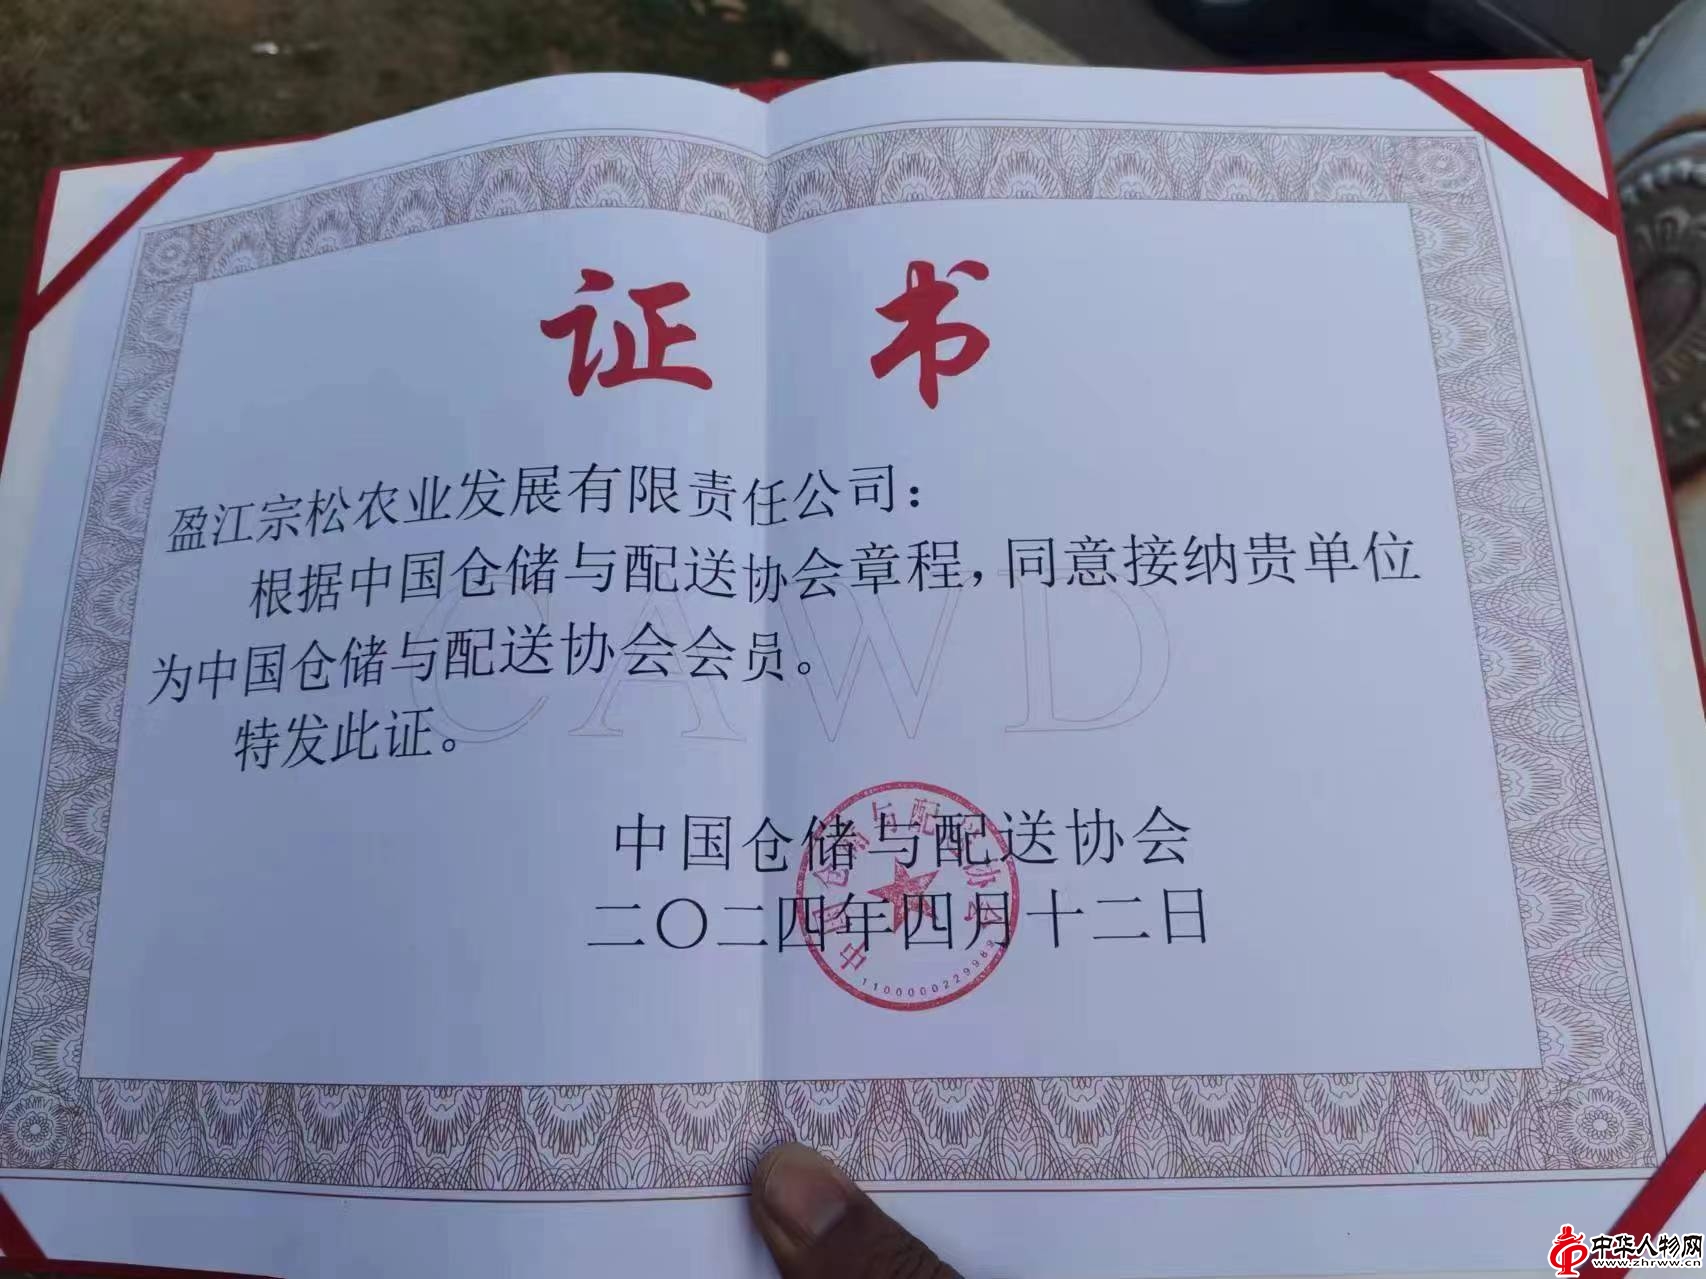 证 书
盈江宗松农业发展有限责任公司：
根据中国仓储与配送协会章程，同意接纳贵单位
为中国仓储与配送协会会员。
特发此证。
CAWD
中国仓储与配送协会
二〇二四年四月十二日
中国仓储与配送协会
1100000229989
中华人物网
www.zhrww.cn